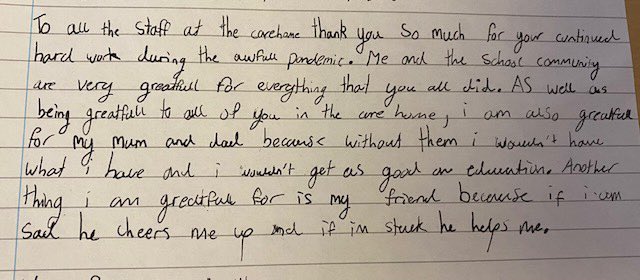 To all the staff at the carehome thank you so much for your continued
hard work during the awfull pandemic. Me and the school community
are very greatfull for everything that you all did. AS well as
being greatfull to all of you in the care home, i am also greatfull
for my mum and dad because without them i wouldn't have
what i have and i wouldn't get as good an education. Another
thing i am greatfull for is my friend because if i am
sad he cheers me up and if im stuck he helps me.